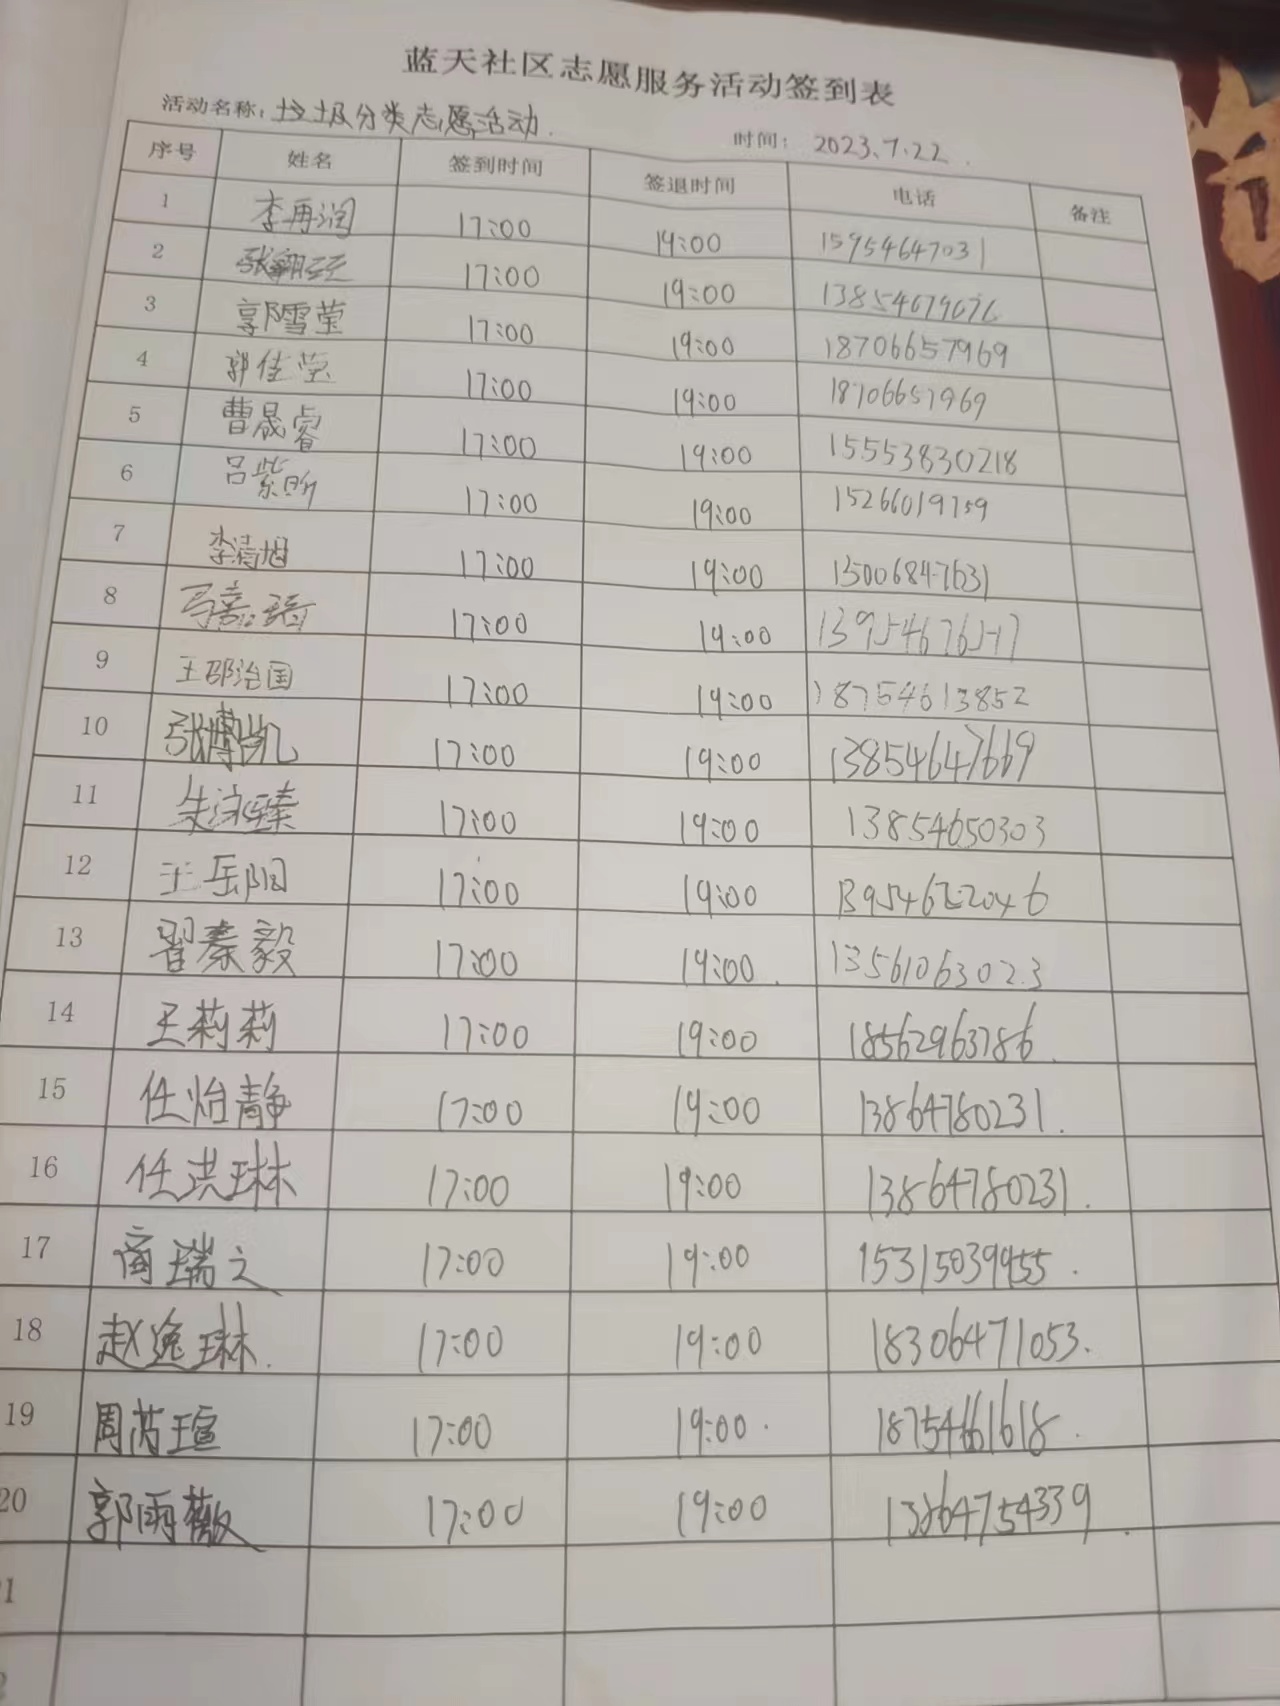 蓝天社区志愿服务活动签到表
活动名称：垃圾分类志愿活动. 时间： 2023.7.22.
序号 姓名 签到时间 签退时间 电话 备注
1 李再润 17:00 19:00 15954647031
2 17:00 19:00
3 郭雪莹 17:00 19:00 18706657969
4 郭佳莹 17:00 19:00 18706657969
5 曹晟睿 17:00 19:00 15553830218
6 吕紫昕 17:00 19:00 15266019759
7 李清旭 17:00 19:00 15006847631
8 马嘉琦 17:00 19:00 13954676517
9 王邵治国 17:00 19:00 18754613852
10 张博凯 17:00 19:00 13854647669
11 朱泳臻 17:00 19:00 13854650303
12 王岳阳 17:00 19:00
13 翟秦毅 17:00 19:00. 13561063023
14 王莉莉 17:00 19:00 18562963786.
15 任怡静 17:00 19:00 13864780231.
16 任洪琳 17:00 19:00 13864780231.
17 商瑞之 17:00 19:00 15315039955.
18 赵逸琳. 17:00 19:00 18306471053.
19 周芮瑄 17:00 19:00. 18754661618.
20 郭雨薇 17:00 19:00 13864754339.